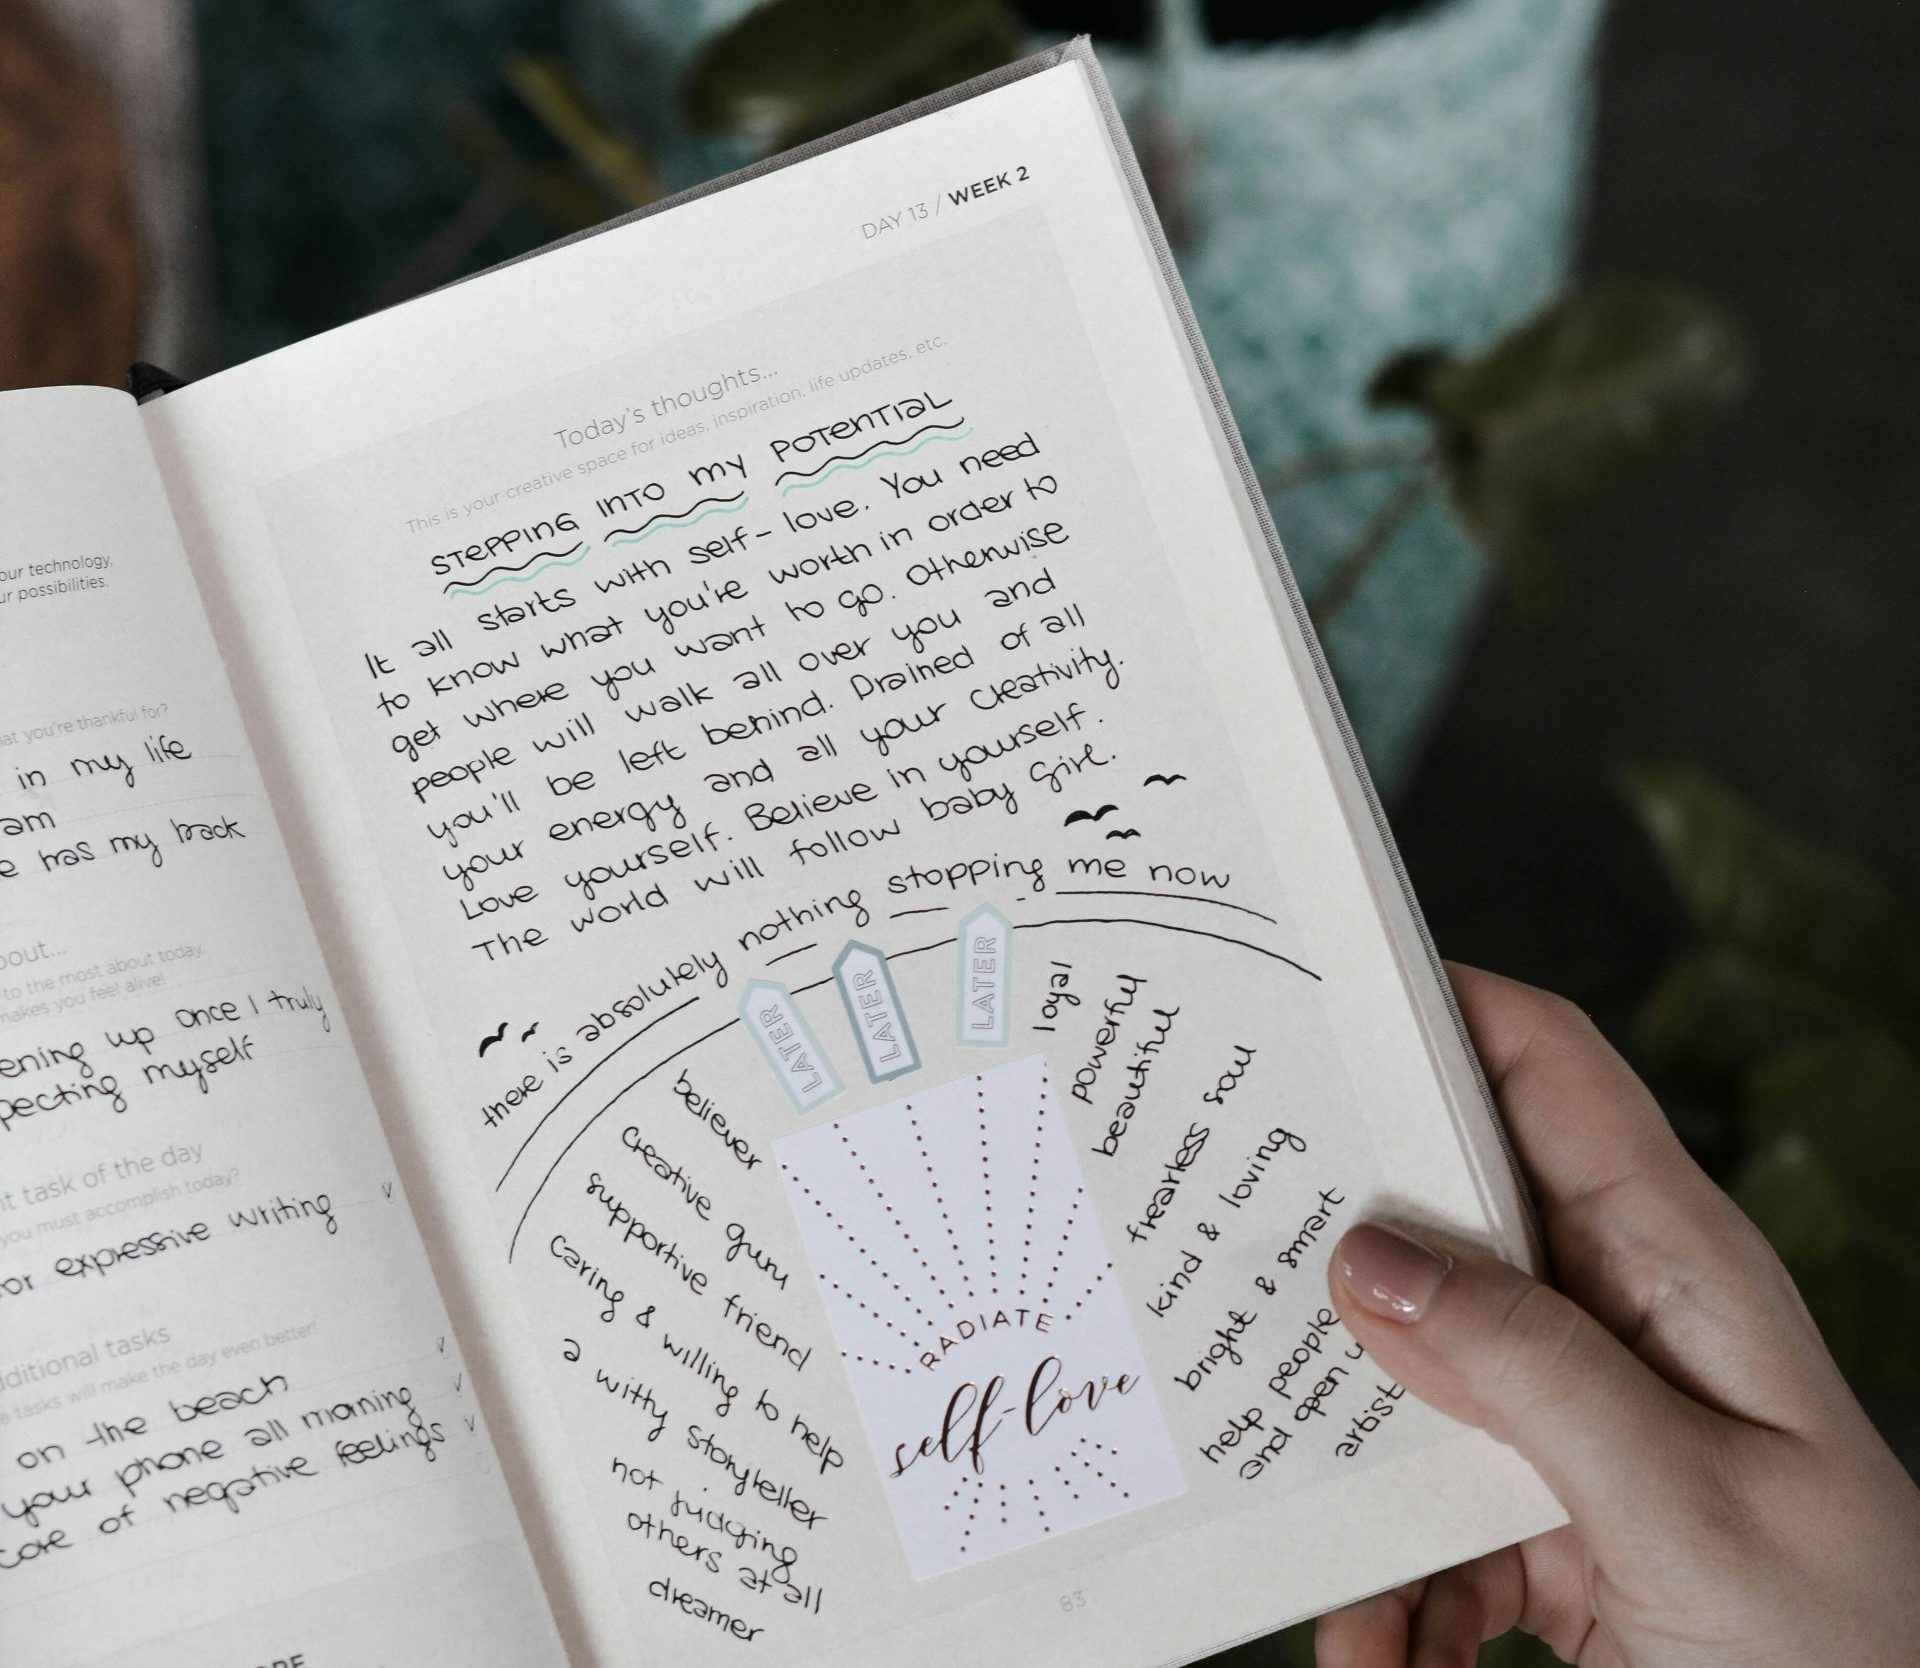 our technology,
ur possibilities.
at you're thankful for?
in my life
am
e has my back
bout...
to the most about today,
makes you feel alive!
ening up once I truly
pecting myself
nt task of the day
you must accomplish today?
or expressive writing
dditional tasks
e tasks will make the day even better!
on the beach
your phone all morning
care of negative feelings
ORE
DAY 13 / WEEK 2
Today's thoughts...
This is your creative space for ideas, inspiration, life updates, etc.
STEPPING INTO MY POTENTIAL
It all starts with self-love. You need
to know what you're worth in order to
get where you want to go. Otherwise
people will walk all over you and
you'll be left behind. Drained of all
your energy and all your creativity.
Love yourself. Believe in yourself.
The world will follow baby girl.
there is absolutely nothing stopping me now
LATER
LATER
LATER
believer
creative guru
supportive friend
caring & willing to help
a witty storyteller
not judging
others at all
dreamer
RADIATE
self-love
loyal
powerful
beautiful
fearless soul
kind & loving
bright & smart
help people
and open u
artist
83